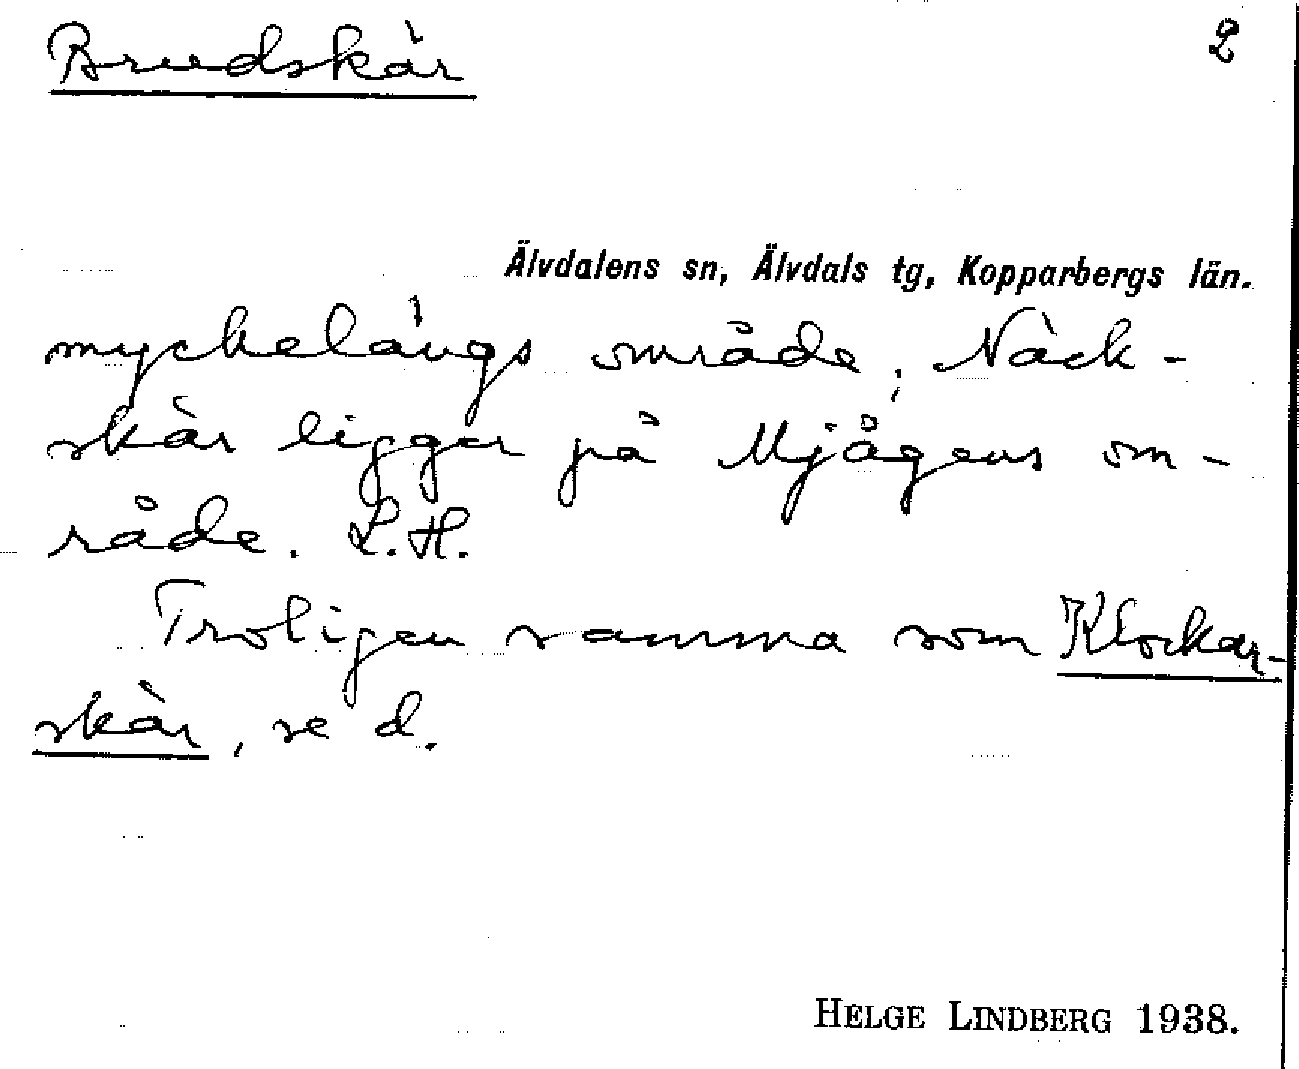 Brudskär 2
Älvdalens sn, Älvdals tg, Kopparbergs län.
myckelängs område, Näck-
skär ligger på Mjågens om-
råde. L.H.
Troligen samma som Klockar-
skär, se d.
HELGE LINDBERG 1938.